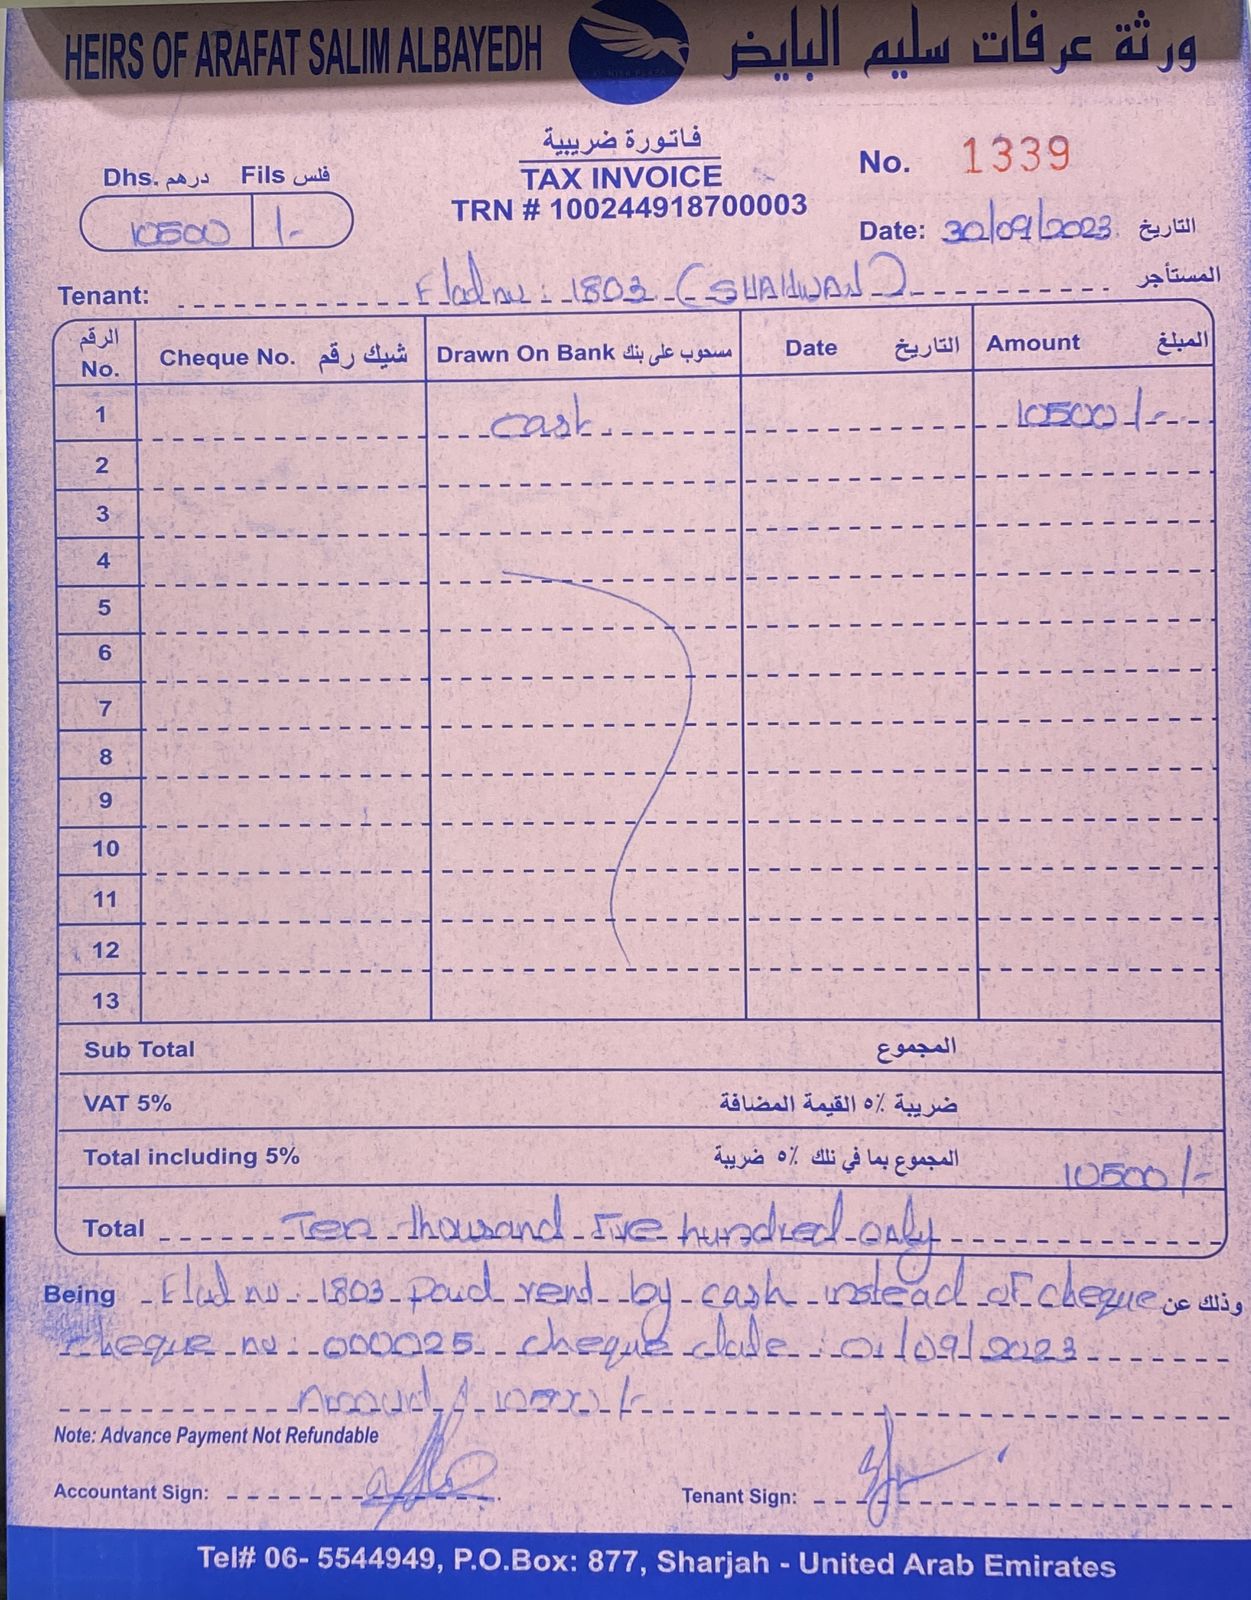 HEIRS OF ARAFAT SALIM ALBAYEDH ورثة عرفات سليم البايض
فاتورة ضريبية
TAX INVOICE
TRN # 100244918700003
No. 1339
Dhs. درهم Fils فلس
10500 /-
Date: 30/09/2023 التاريخ
Tenant: Flat no: 1803 (SHAHWAN) المستأجر
الرقم No. Cheque No. شيك رقم Drawn On Bank مسحوب على بنك Date التاريخ Amount المبلغ
1 cash 10500/-
2
3
4
5
6
7
8
9
10
11
12
13
Sub Total المجموع
VAT 5% ضريبة ٥٪ القيمة المضافة
Total including 5% المجموع بما في ذلك ٥٪ ضريبة 10500/-
Total Ten thousand Five hundred only
Being Flat no. 1803 Paid rent by cash instead of cheque وذلك عن
cheque no: 000025 cheque date: 01/09/2023
Amount
Note: Advance Payment Not Refundable
Accountant Sign: Tenant Sign:
Tel# 06- 5544949, P.O.Box: 877, Sharjah - United Arab Emirates